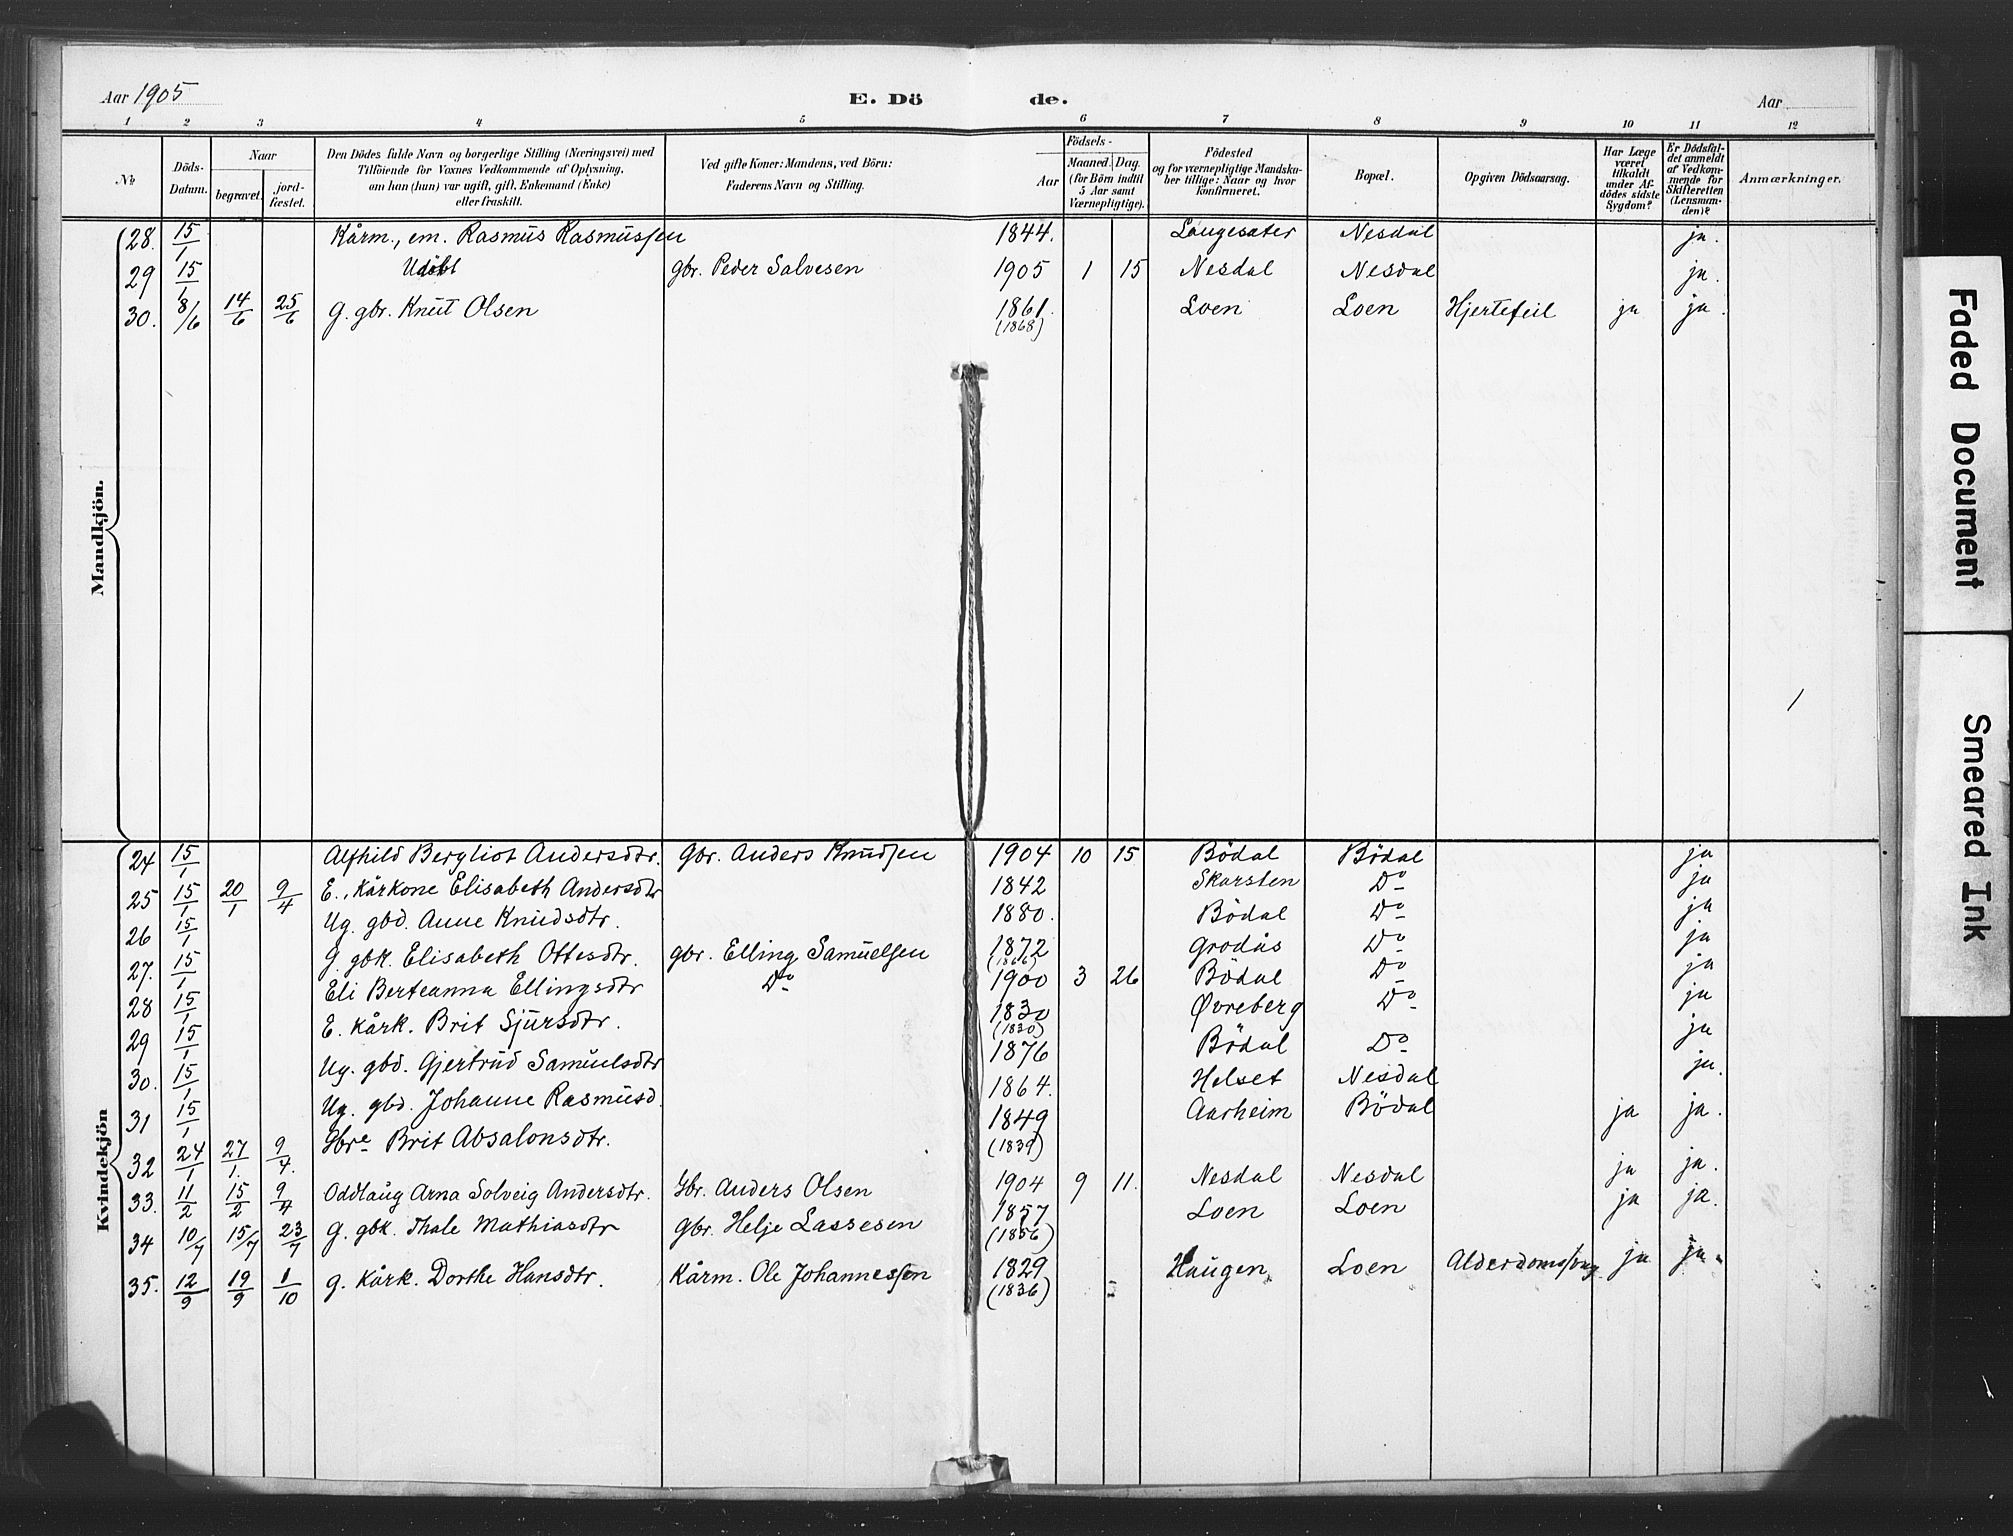 Aar 1905
E. Dö de.
Aar
1 2 3 4 5 6 7 8 9 10 11 12
No
Döds-Datum.
Naar
begravet.
jordfæstet.
Den Dödes fulde Navn og borgerlige Stilling (Næringsvei) med
Tilföiende for Voxnes Vedkommende af Oplysning,
om han (hun) var ugift, gift, Enkemand (Enke)
eller fraskilt.
Ved gifte Koner: Mandens, ved Börn:
Faderens Navn og Stilling.
Födsels-
Aar
Maaned. Dag.
(for Börn indtil
5 Aar samt
Værnepligtige).
Födested
og for værnepligtige Mandskaber
tillige: Naar og hvor
konfirmeret.
Bopæl.
Opgiven Dödsaarsag.
Har Læge
været
tilkaldt
under Afdödes
sidste
Sygdom?
Er Dödsfaldet
anmeldt
af Vedkommende
for
Skifteretten
(Lensmanden)?
Anmærkninger.
Mandkjön.
28. 15/1 Kårm., em. Rasmus Rasmussen 1844. Nesdal ja.
29 15/1 Udöbt gbr. Peder Salvesen 1905 1 15 Nesdal Nesdal ja.
30. 8/6 14/6 25/6 G. gbr. Knut Olsen 1861. (1868) Loen Loen Hjertefeil ja ja.
Kvindekjön
24 15/1 Alfhild Bergliot Andersdtr. Gbr. Anders Knudsen 1904 10 15 Bödal Bödal ja
25 15/1 20/1 9/4 E., Kårkone Elisabeth Andersdtr 1842 Skarsten Do ja
26 15/1 Ug. gbd. Anne Knudsdtr. 1880. Bödal Do ja
27. 15/1 G. gbk. Elisabeth Ottesdtr. gbr. Elling Samuelsen 1872 Grodås Do ja
28 15/1 Eli Berteanna Ellingsdtr Do 1900 3 26 Bödal Do ja
29 15/1 E. Kårk. Brit Sjursdtr. 1830 (1830) Øvreberg Do ja
30. 15/1 Ug. gbd. Gjertrud Samuelsdtr 1876 Bödal Do ja
31 15/1 Ug. gbd. Johanne Rasmusd. 1864. Helset Nesdal ja.
32 24/1 27/1. 9/4. Gbre Brit Absalonsdtr. 1849 (1839) Aarheim Bödal ja ja.
33. 11/2 15/2 9/4 Oddlaug Arna Solveig Andersdtr. Gbr. Anders Olsen 1904 9 11. Nesdal Nesdal ja ja.
34 10/7 15/7 23/7 G. gbk. Thale Mathiasdtr gbr. Helje Lassesen 1857 (1856) Loen Loen ja ja.
35. 12/9 19/9 1/10 G. Kårk. Dorthe Hansdtr. Kårm. Ole Johannessen 1829 (1836) Haugen Loen ja ja.
Faded Document
Smeared Ink